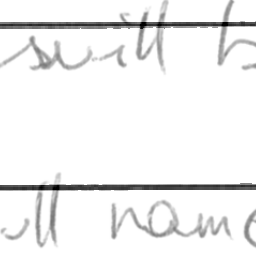 will b
ill name